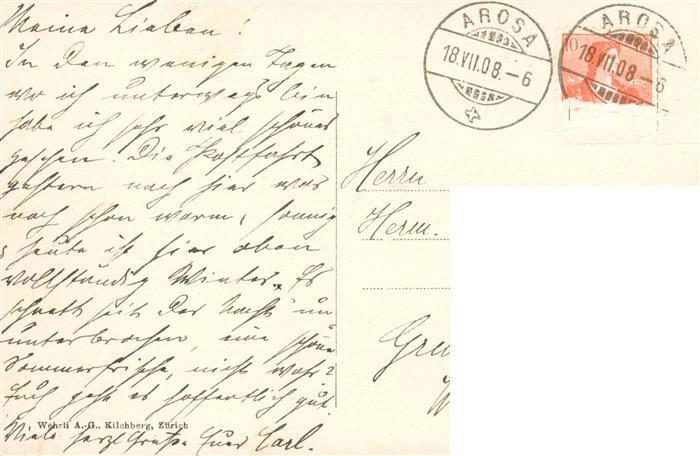 Meine Lieben!
In den wenigen Tagen
wo ich unterwegs bin
habe ich sehr viel schönes
gesehen. Die Postfahrt
gestern nach hier war
noch schön warm, sonnig
heute ist hier oben
vollständig Winter. Es
schneit seit der Nacht un
unterbrochen, eine schöne
Sommerfrische, nicht wahr?
Euch geht es hoffentlich gut.
Viele herzl Grüße Euer Carl.
Wehrli A.-G., Kilchberg, Zürich
AROSA
18.VII.08.-6
AROSA
18.VII.08.-6
10
Herrn
Herm.